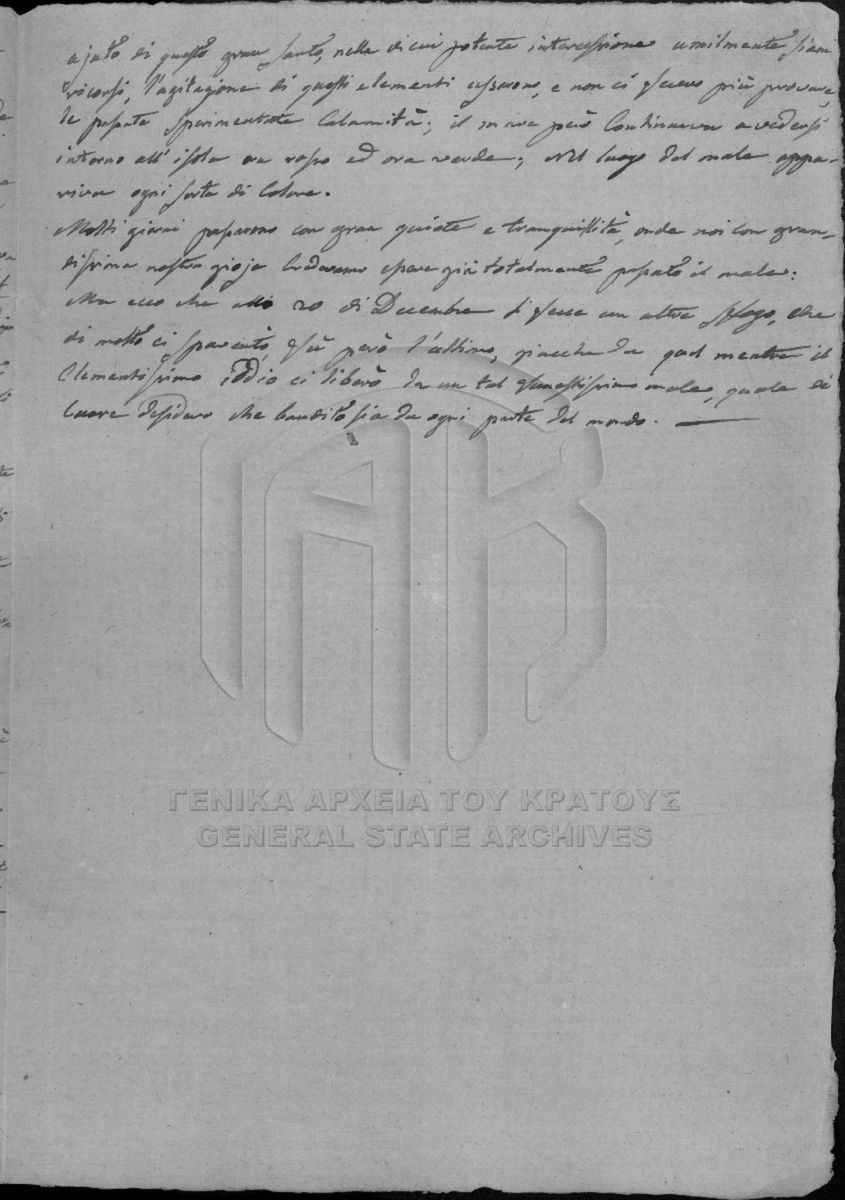 ajuto di questo gran santo, nella di cui potente intercessione umilmente siam
ricorsi, l'agitazione di questi elementi cessarono, e non ci fecero più provare,
le passate sperimentate Calamità; il mare però Continuava a vedersi
intorno all'isola ora rosso ed ora verde; Nel luogo del male appa-
riva ogni sorta di Colore.
Molti giorni passarono con gran quiete e tranquillità, onde noi con gran-
dissima nostra gioja Credevamo essere già totalmente passato il male:
Ma ecco che alli 20 di Decembre si fece un altro sfogo, che
di molto ci spaventò, fù però l'ultimo, giacche da quel mentre il
Clementissimo iddio ci liberò da un tal funestissimo male, quale di
Cuore desidero che bandito sia da ogni parte del mondo.
ΓΕΝΙΚΑ ΑΡΧΕΙΑ ΤΟΥ ΚΡΑΤΟΥΣ
GENERAL STATE ARCHIVES